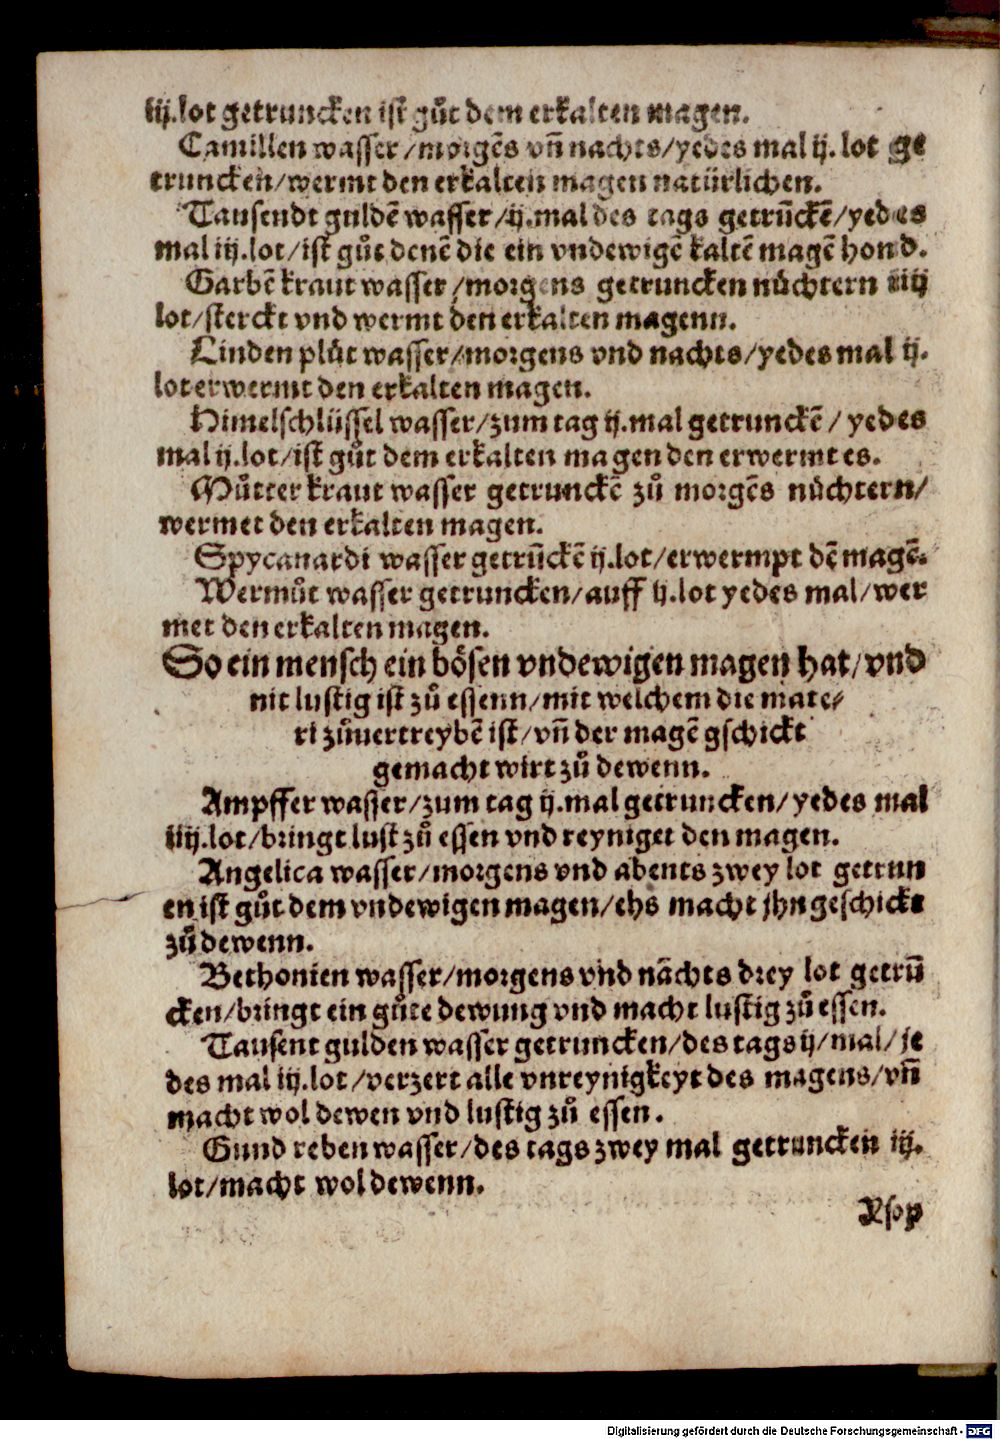 iij.lot getruncken ist gůt dem erkalten magen.
Camillen wasser/morgēs vn̄ nachts/yedes mal ij. lot ge
truncken/wermt den erkalten magen natürlichen.
Tausendt guldē wasser/ij.mal des tags getrūckē/yedes
mal iij.lot/ist gůt denē die ein vndewigē kaltē magē hond.
Garbē kraut wasser/morgens getruncken nůchtern iiij
lot/sterckt vnd wermt den erkalten magenn.
Linden plůt wasser/morgens vnd nachts/yedes mal ij.
lot erwermt den erkalten magen.
Himelschlüssel wasser/zum tag ij.mal getrunckē/ yedes
mal ij.lot/ist gůt dem erkalten magen den erwermt es.
Můtter kraut wasser getrunckē zů morgēs nůchtern/
wermet den erkalten magen.
Spycanardi wasser getrūckē ij.lot/erwermpt dē magē.
Wermůt wasser getruncken/auff ij.lot yedes mal/wer
met den erkalten magen.
So ein mensch ein bösen vndewigen magen hat/vnd
nit lustig ist zů essenn/mit welchem die mate⸗
ri zůuertreybē ist/vn̄ der magē gschickt
gemacht wirt zů dewenn.
Ampffer wasser/zum tag ij.mal getruncken/yedes mal
iiij.lot/bringt lust zů essen vnd reyniget den magen.
Angelica wasser/morgens vnd abents zwey lot getrun
en ist gůt dem vndewigen magen/ehs macht jhn geschickt
zů dewenn.
Bethonien wasser/morgens vnd nāchts drey lot getrū
cken/bringt ein gůte dewung vnd macht lustig zů essen.
Tausent gulden wasser getruncken/des tags ij/mal/je
des mal iij.lot/verzert alle vnreynigkeyt des magens/vn̄
macht wol dewen vnd lustig zů essen.
Gund reben wasser/des tags zwey mal getruncken iij.
lot/macht wol dewenn.
Ysop
Digitalisierung gefördert durch die Deutsche Forschungsgemeinschaft - DFG